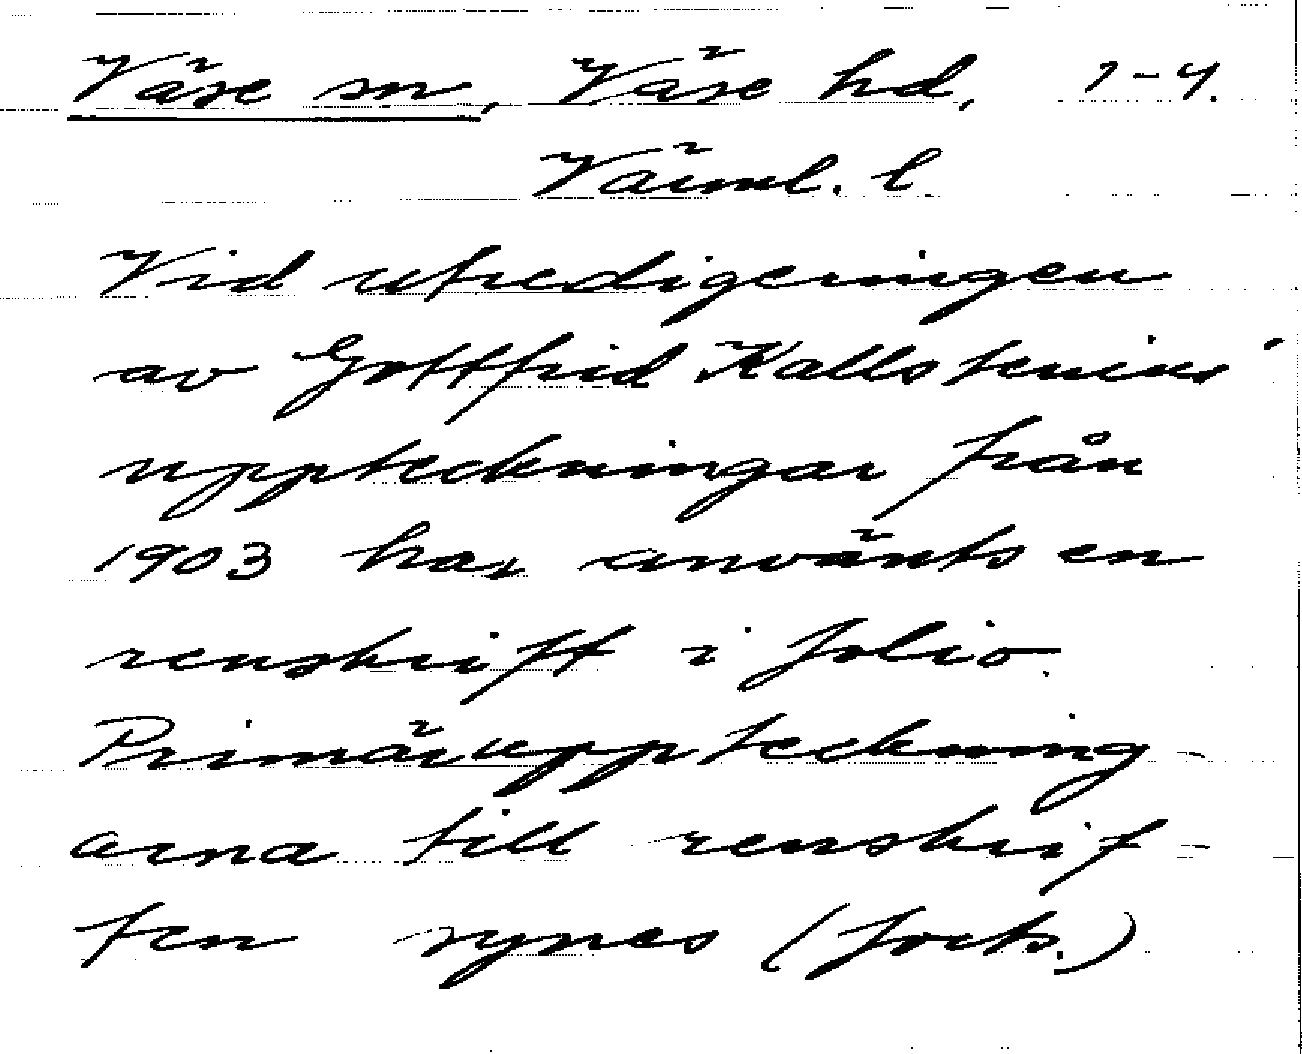 Väse sn, Väse hd, 1-4.
Värml. l.
Vid utredigeringen
av Gottfrid Kallstenius'
uppteckningar från
1903 har använts en
renskrift i folio.
Primäruppteckning-
arna till renskrif-
ten synes (forts.)